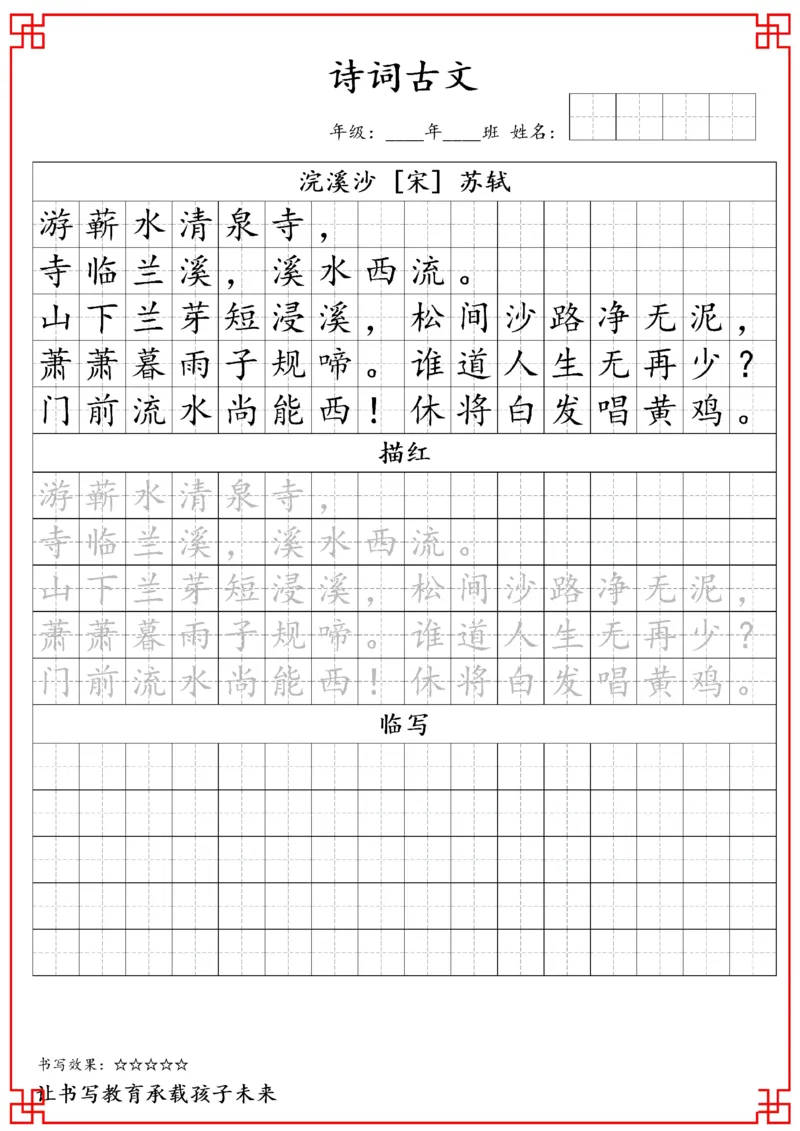 诗词古文
年级：____年____班 姓名：
浣溪沙 [宋] 苏轼
游蕲水清泉寺，
寺临兰溪，溪水西流。
山下兰芽短浸溪，松间沙路净无泥，
萧萧暮雨子规啼。谁道人生无再少？
门前流水尚能西！休将白发唱黄鸡。
描红
游蕲水清泉寺，
寺临兰溪，溪水西流。
山下兰芽短浸溪，松间沙路净无泥，
萧萧暮雨子规啼。谁道人生无再少？
门前流水尚能西！休将白发唱黄鸡。
临写
书写效果：☆☆☆☆☆
让书写教育承载孩子未来